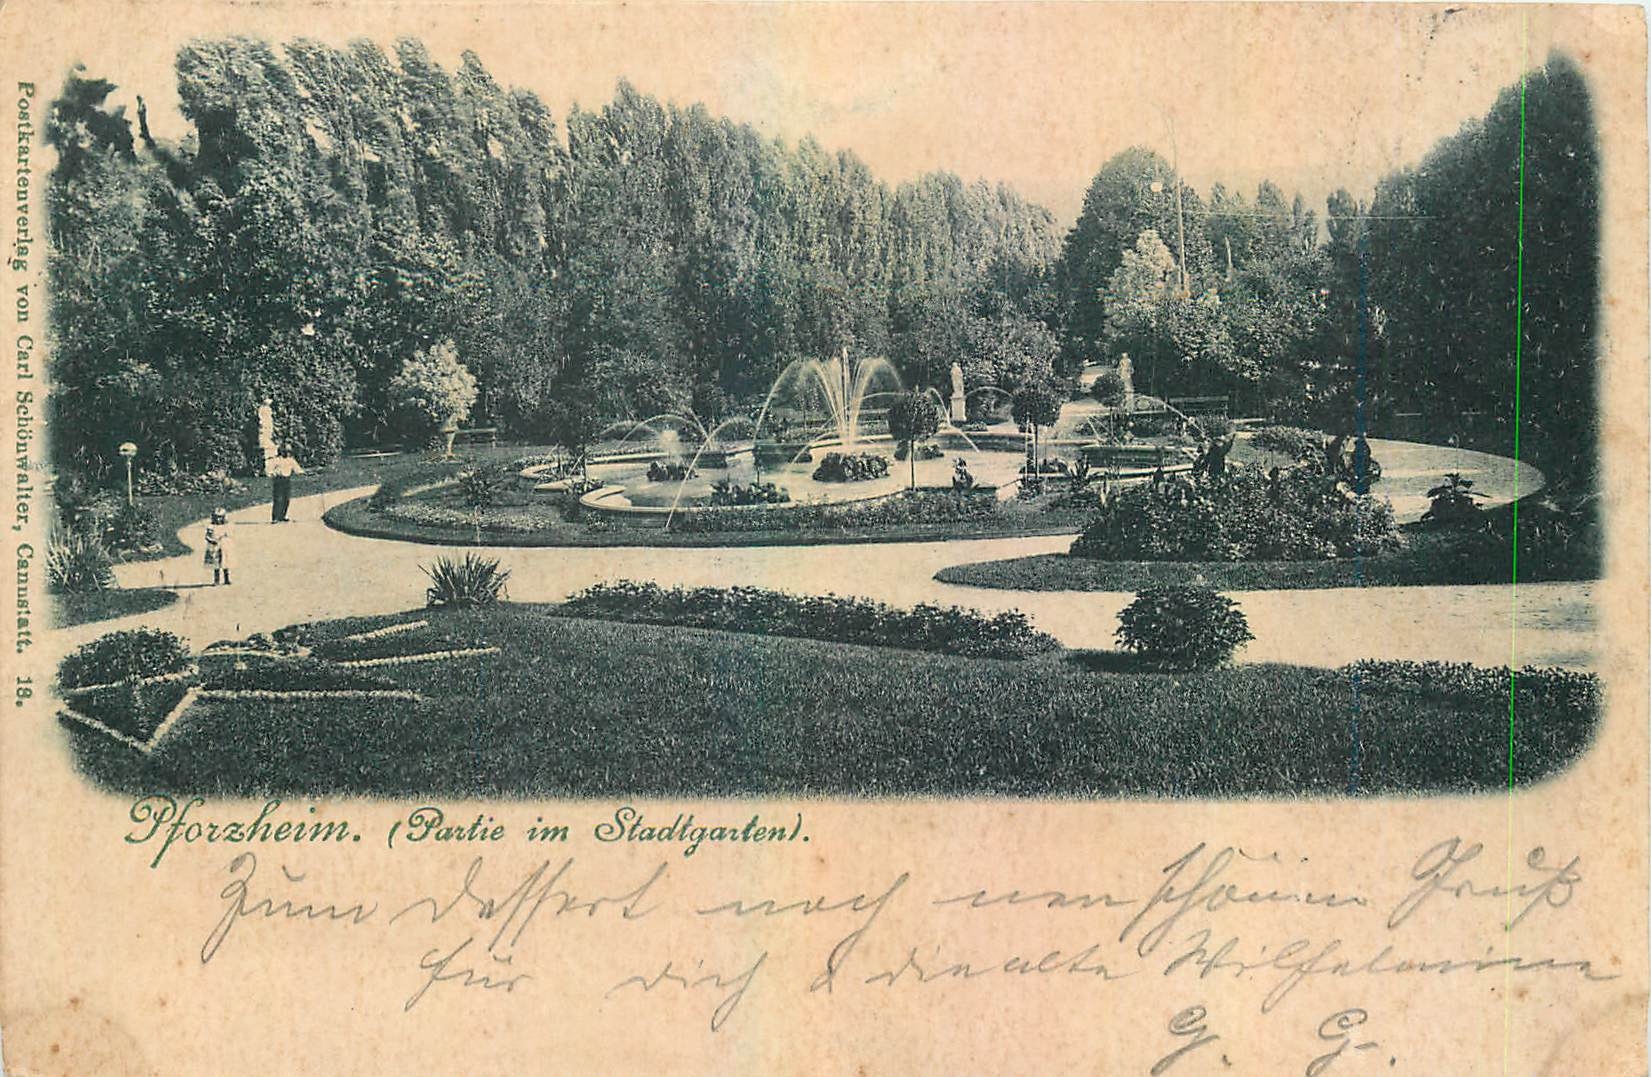 Postkartenverlag von Carl Schönwalter, Cannstatt. 18.
Pforzheim. (Partie im Stadtgarten).
Zum Dessert noch nen schönen Gruß
für Dich & die alte Wilhelmine
G. G.